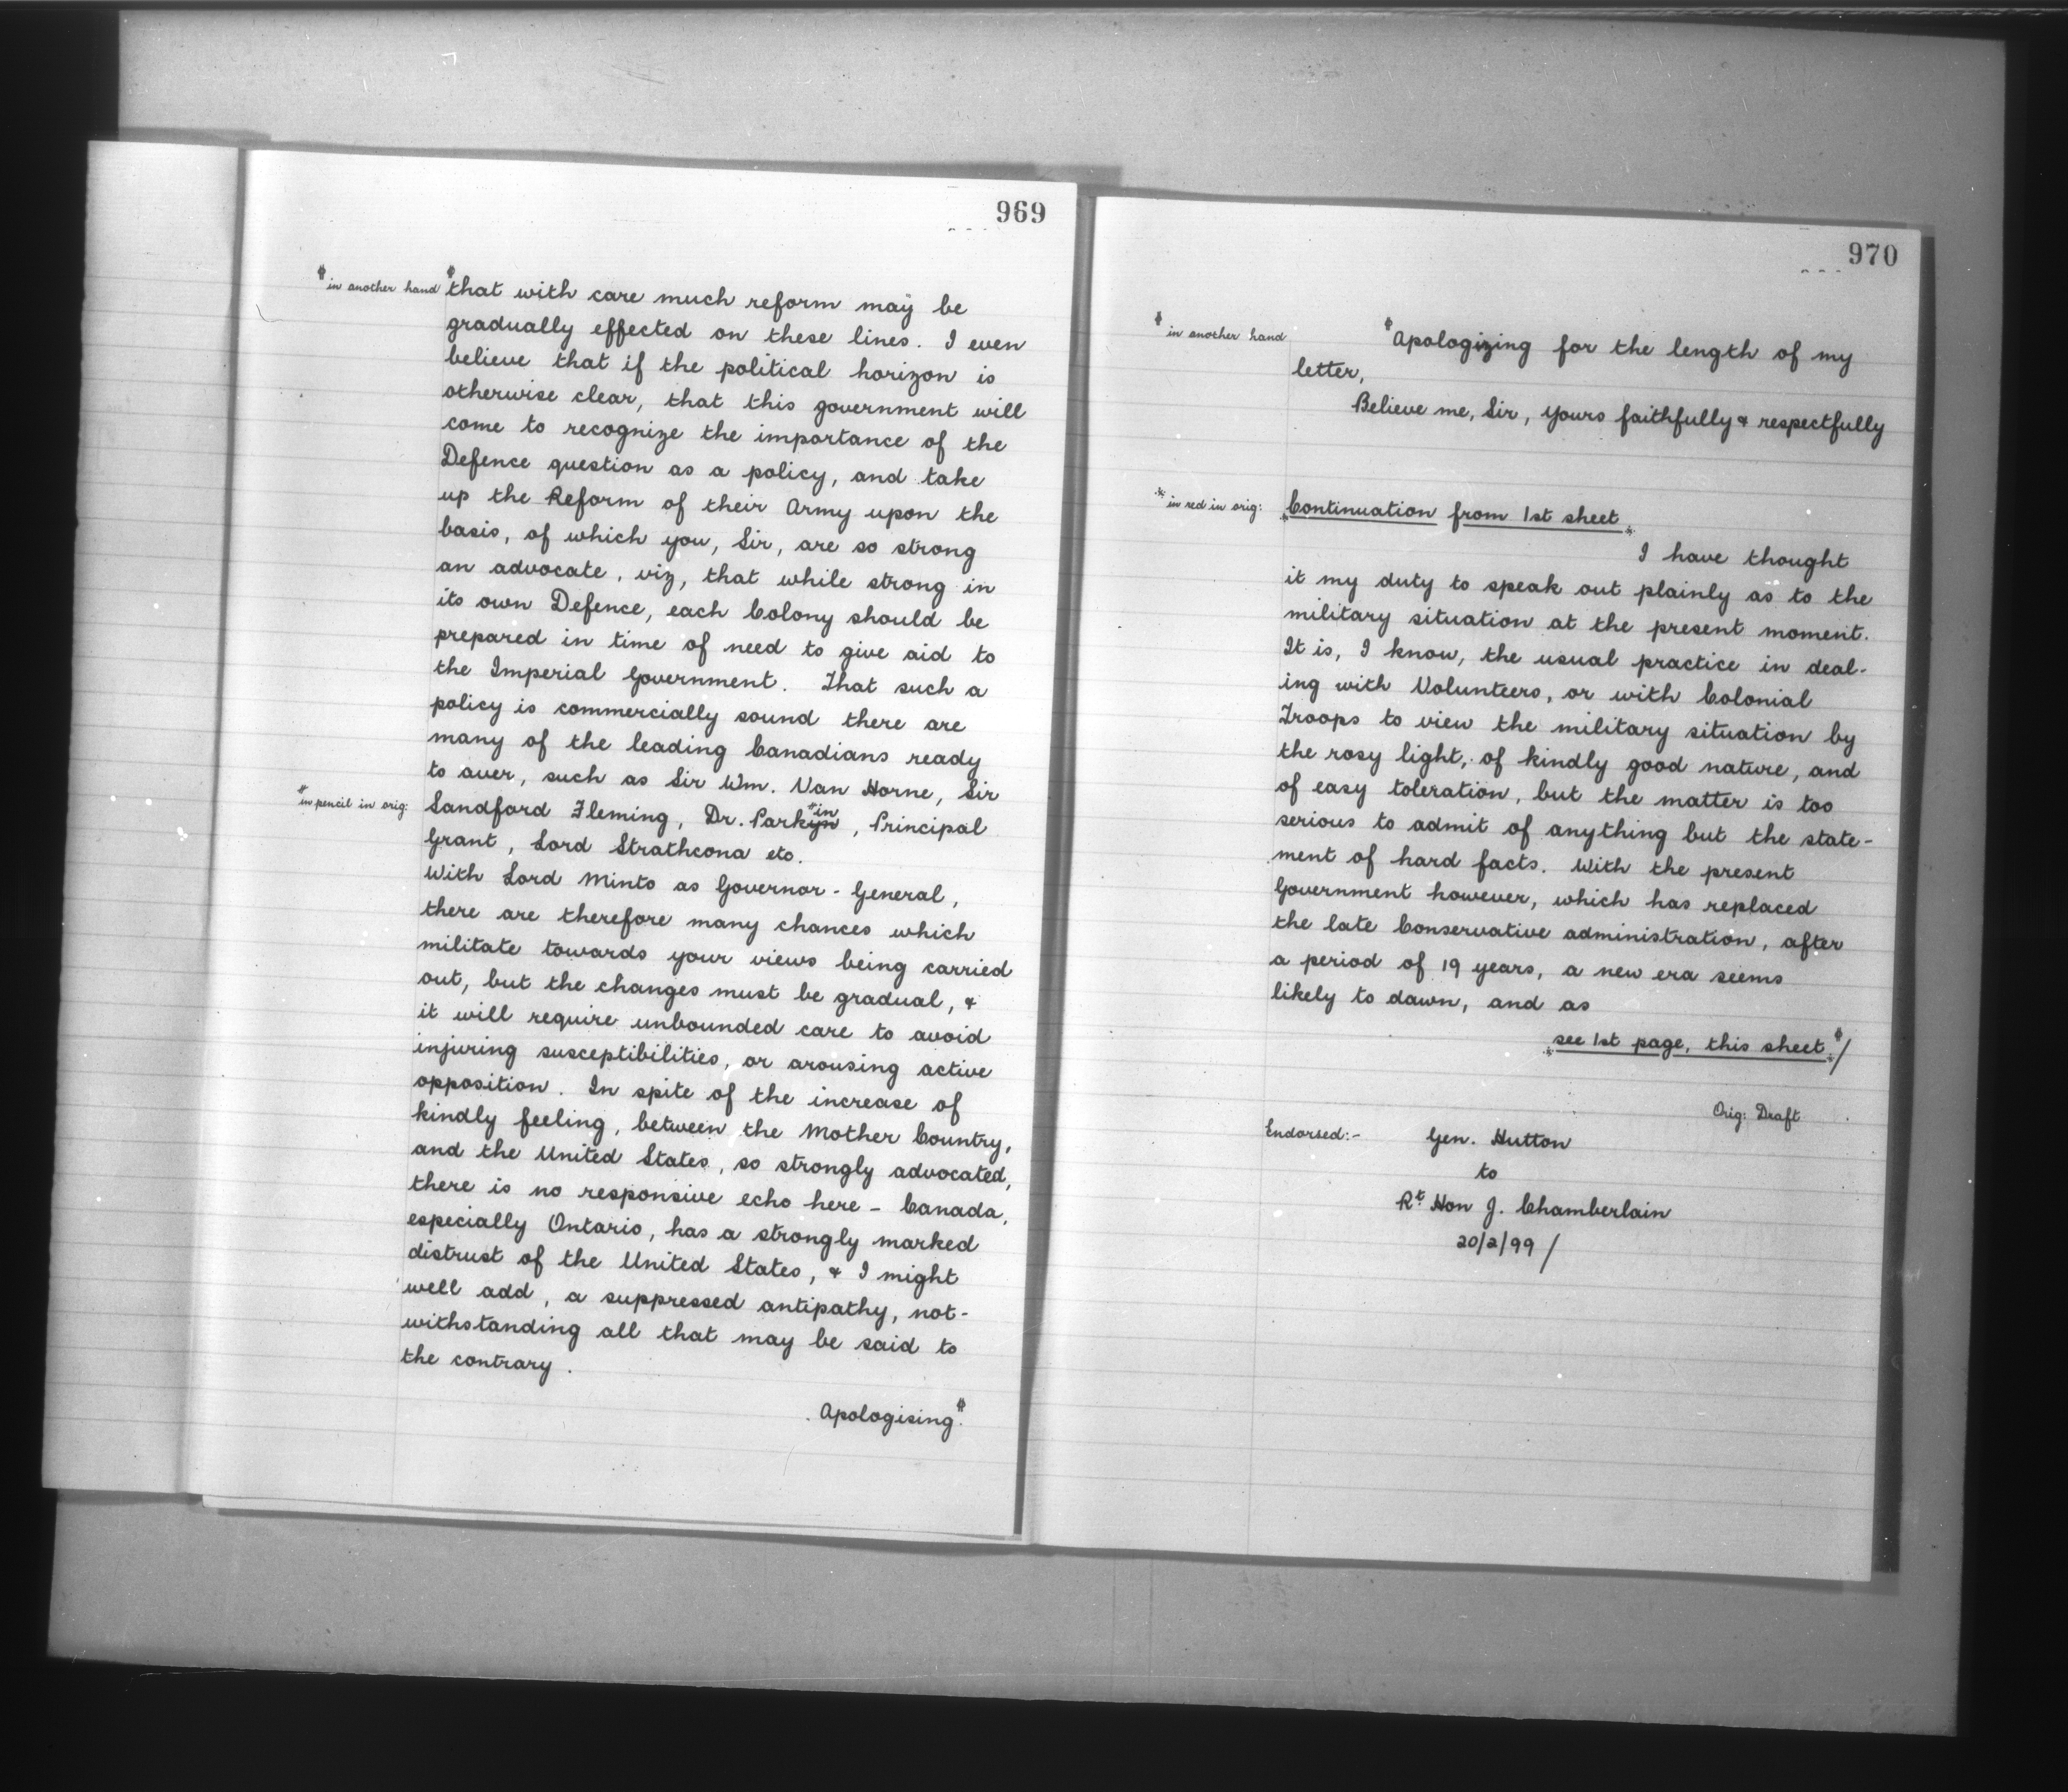 969
# in another hand #that with care much reform may be
gradually effected on these lines. I even
believe that if the political horizon is
otherwise clear, that this government will
come to recognize the importance of the
Defence question as a policy, and take
up the Reform of their Army upon the
basis, of which you, Sir, are so strong
an advocate, viz, that while strong in
its own Defence, each Colony should be
prepared in time of need to give aid to
the Imperial Government. That such a
policy is commercially sound there are
many of the leading Canadians ready
to aver, such as Sir Wm. Van Horne, Sir
# in pencil in orig: Sandford Fleming, Dr. Parkyn #in, Principal
Grant, Lord Strathcona etc.
With Lord Minto as Governor-General,
there are therefore many chances which
militate towards your views being carried
out, but the changes must be gradual, &
it will require unbounded care to avoid
injuring susceptibilities, or arousing active
opposition. In spite of the increase of
kindly feeling, between the Mother Country,
and the United States, so strongly advocated,
there is no responsive echo here - Canada,
especially Ontario, has a strongly marked
distrust of the United States, & I might
well add, a suppressed antipathy, not-
withstanding all that may be said to
the contrary.
Apologising.#
970
# in another hand #Apologizing for the length of my
letter,
Believe me, Sir, yours faithfully & respectfully
* in red in orig: *Continuation from 1st sheet*
I have thought
it my duty to speak out plainly as to the
military situation at the present moment.
It is, I know, the usual practice in deal-
ing with Volunteers, or with Colonial
Troops to view the military situation by
the rosy light, of kindly good nature, and
of easy toleration, but the matter is too
serious to admit of anything but the state-
ment of hard facts. With the present
Government however, which has replaced
the late Conservative administration, after
a period of 19 years, a new era seems
likely to dawn, and as
*see 1st page, this sheet*#/
Orig: Draft
Endorsed:- Gen. Hutton
to
Rt. Hon J. Chamberlain
20/2/99 /